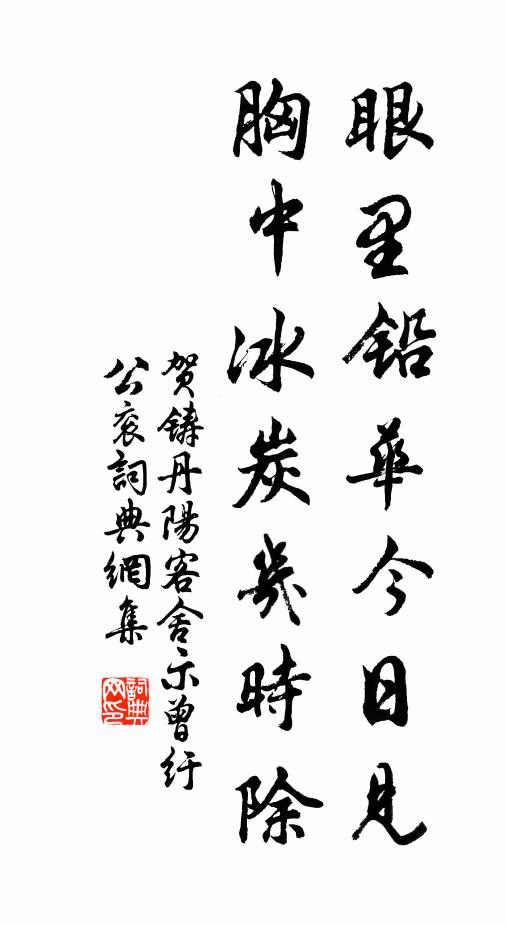 眼里鉛華今日見
胸中冰炭幾時除
贺鑄丹陽客舍示曾紆
公袞詞典網集
詞典
网印